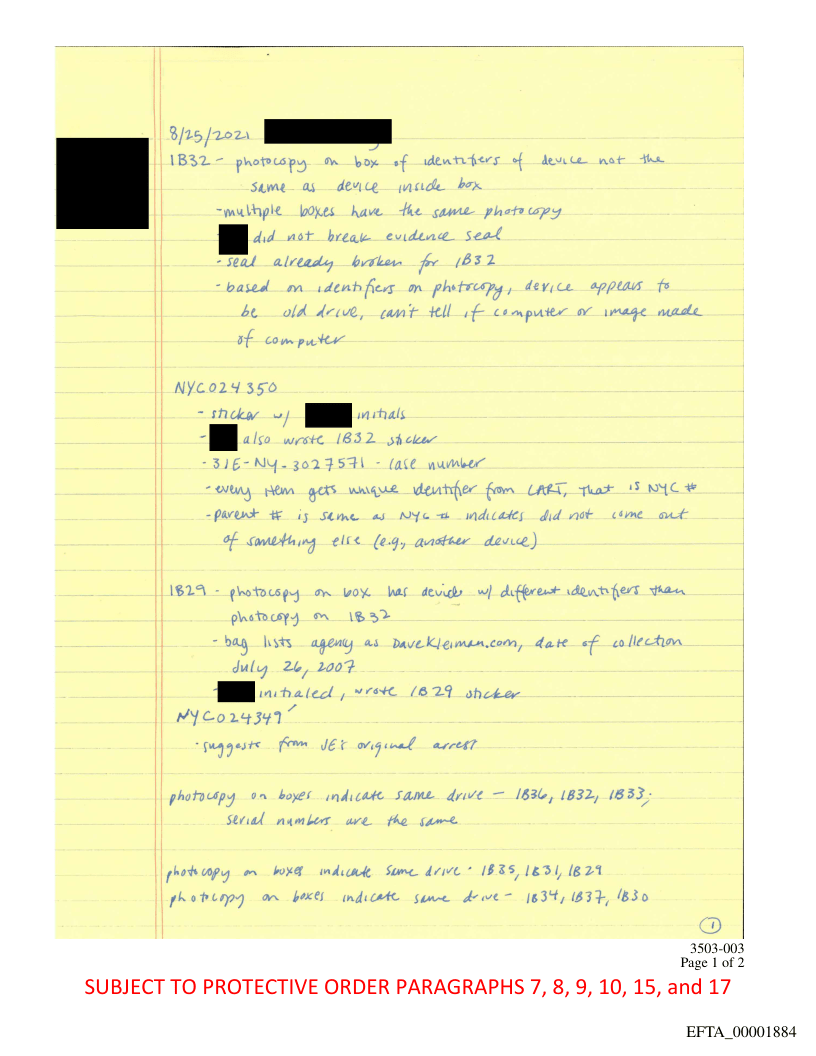 8/25/2021
1B32 - photocopy on box of identifiers of device not the
same as device inside box
-multiple boxes have the same photocopy
did not break evidence seal
- seal already broken for 1B32
- based on identifiers on photocopy, device appears to
be old drive, can't tell if computer or image made
of computer
NYC024350
- sticker w/ initials
- also wrote 1B32 sticker
- 31E-NY-3027571 - case number
- every item gets unique identifier from CART, that is NYC #
- parent # is same as NYC # indicates did not come out
of something else (e.g., another device)
1B29 - photocopy on box has device w/ different identifiers than
photocopy on 1B32
- bag lists agency as DaveKleiman.com, date of collection
July 26, 2007
- initialed, wrote 1B29 sticker
NYC024349
- suggests from JE's original arrest
photocopy on boxes indicate same drive - 1B36, 1B32, 1B33;
serial numbers are the same
photocopy on boxes indicate same drive - 1B35, 1B31, 1B29
photocopy on boxes indicate same drive - 1B34, 1B37, 1B30
1
3503-003
Page 1 of 2
SUBJECT TO PROTECTIVE ORDER PARAGRAPHS 7, 8, 9, 10, 15, and 17
EFTA_00001884